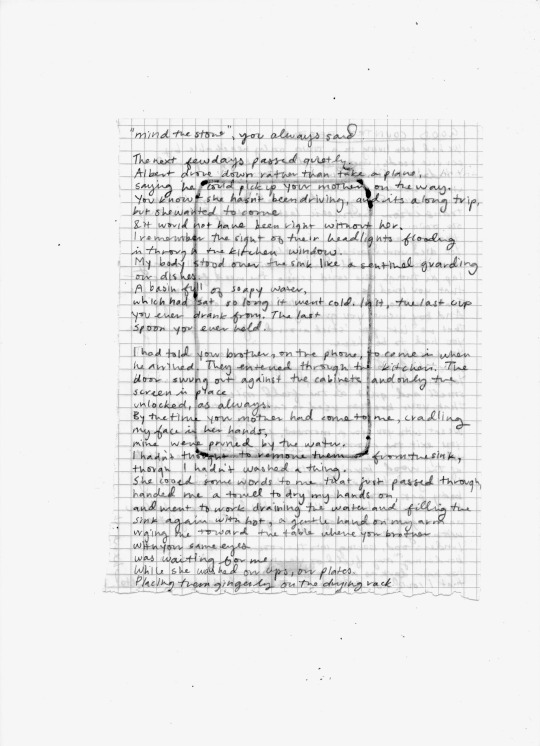 "mind the stone", you always said
The next few days passed quietly.
Albert drove down rather than take a plane,
saying he could pick up your mother on the way.
You know she hasn't been driving, and its a long trip,
but she wanted to come
& it would not have been right without her.
I remember the sight of their headlights flooding
in through the kitchen window.
My body stood over the sink like a sentinel guarding
our dishes.
A basin full of soapy water,
which had sat so long it went cold. In it, the last cup
you ever drank from. The last
spoon you ever held.
I had told your brother, on the phone, to come in when
he arrived. They entered through the kitchen. The
door swung out against the cabinets and only the
screen in place
unlocked, as always.
By the time your mother had come to me, cradling
my face in her hands,
mine were pruned by the water.
I hadn't thought to remove them from the sink,
though I hadn't washed a thing.
She cooed some words to me that just passed through,
handed me a towel to dry my hands on,
and went to work draining the water and filling the
sink again with hot, a gentle hand on my arm
urging me toward the table where your brother
with your same eyes
was waiting for me
while she washed our cups, our plates.
Placing them gingerly on the drying rack